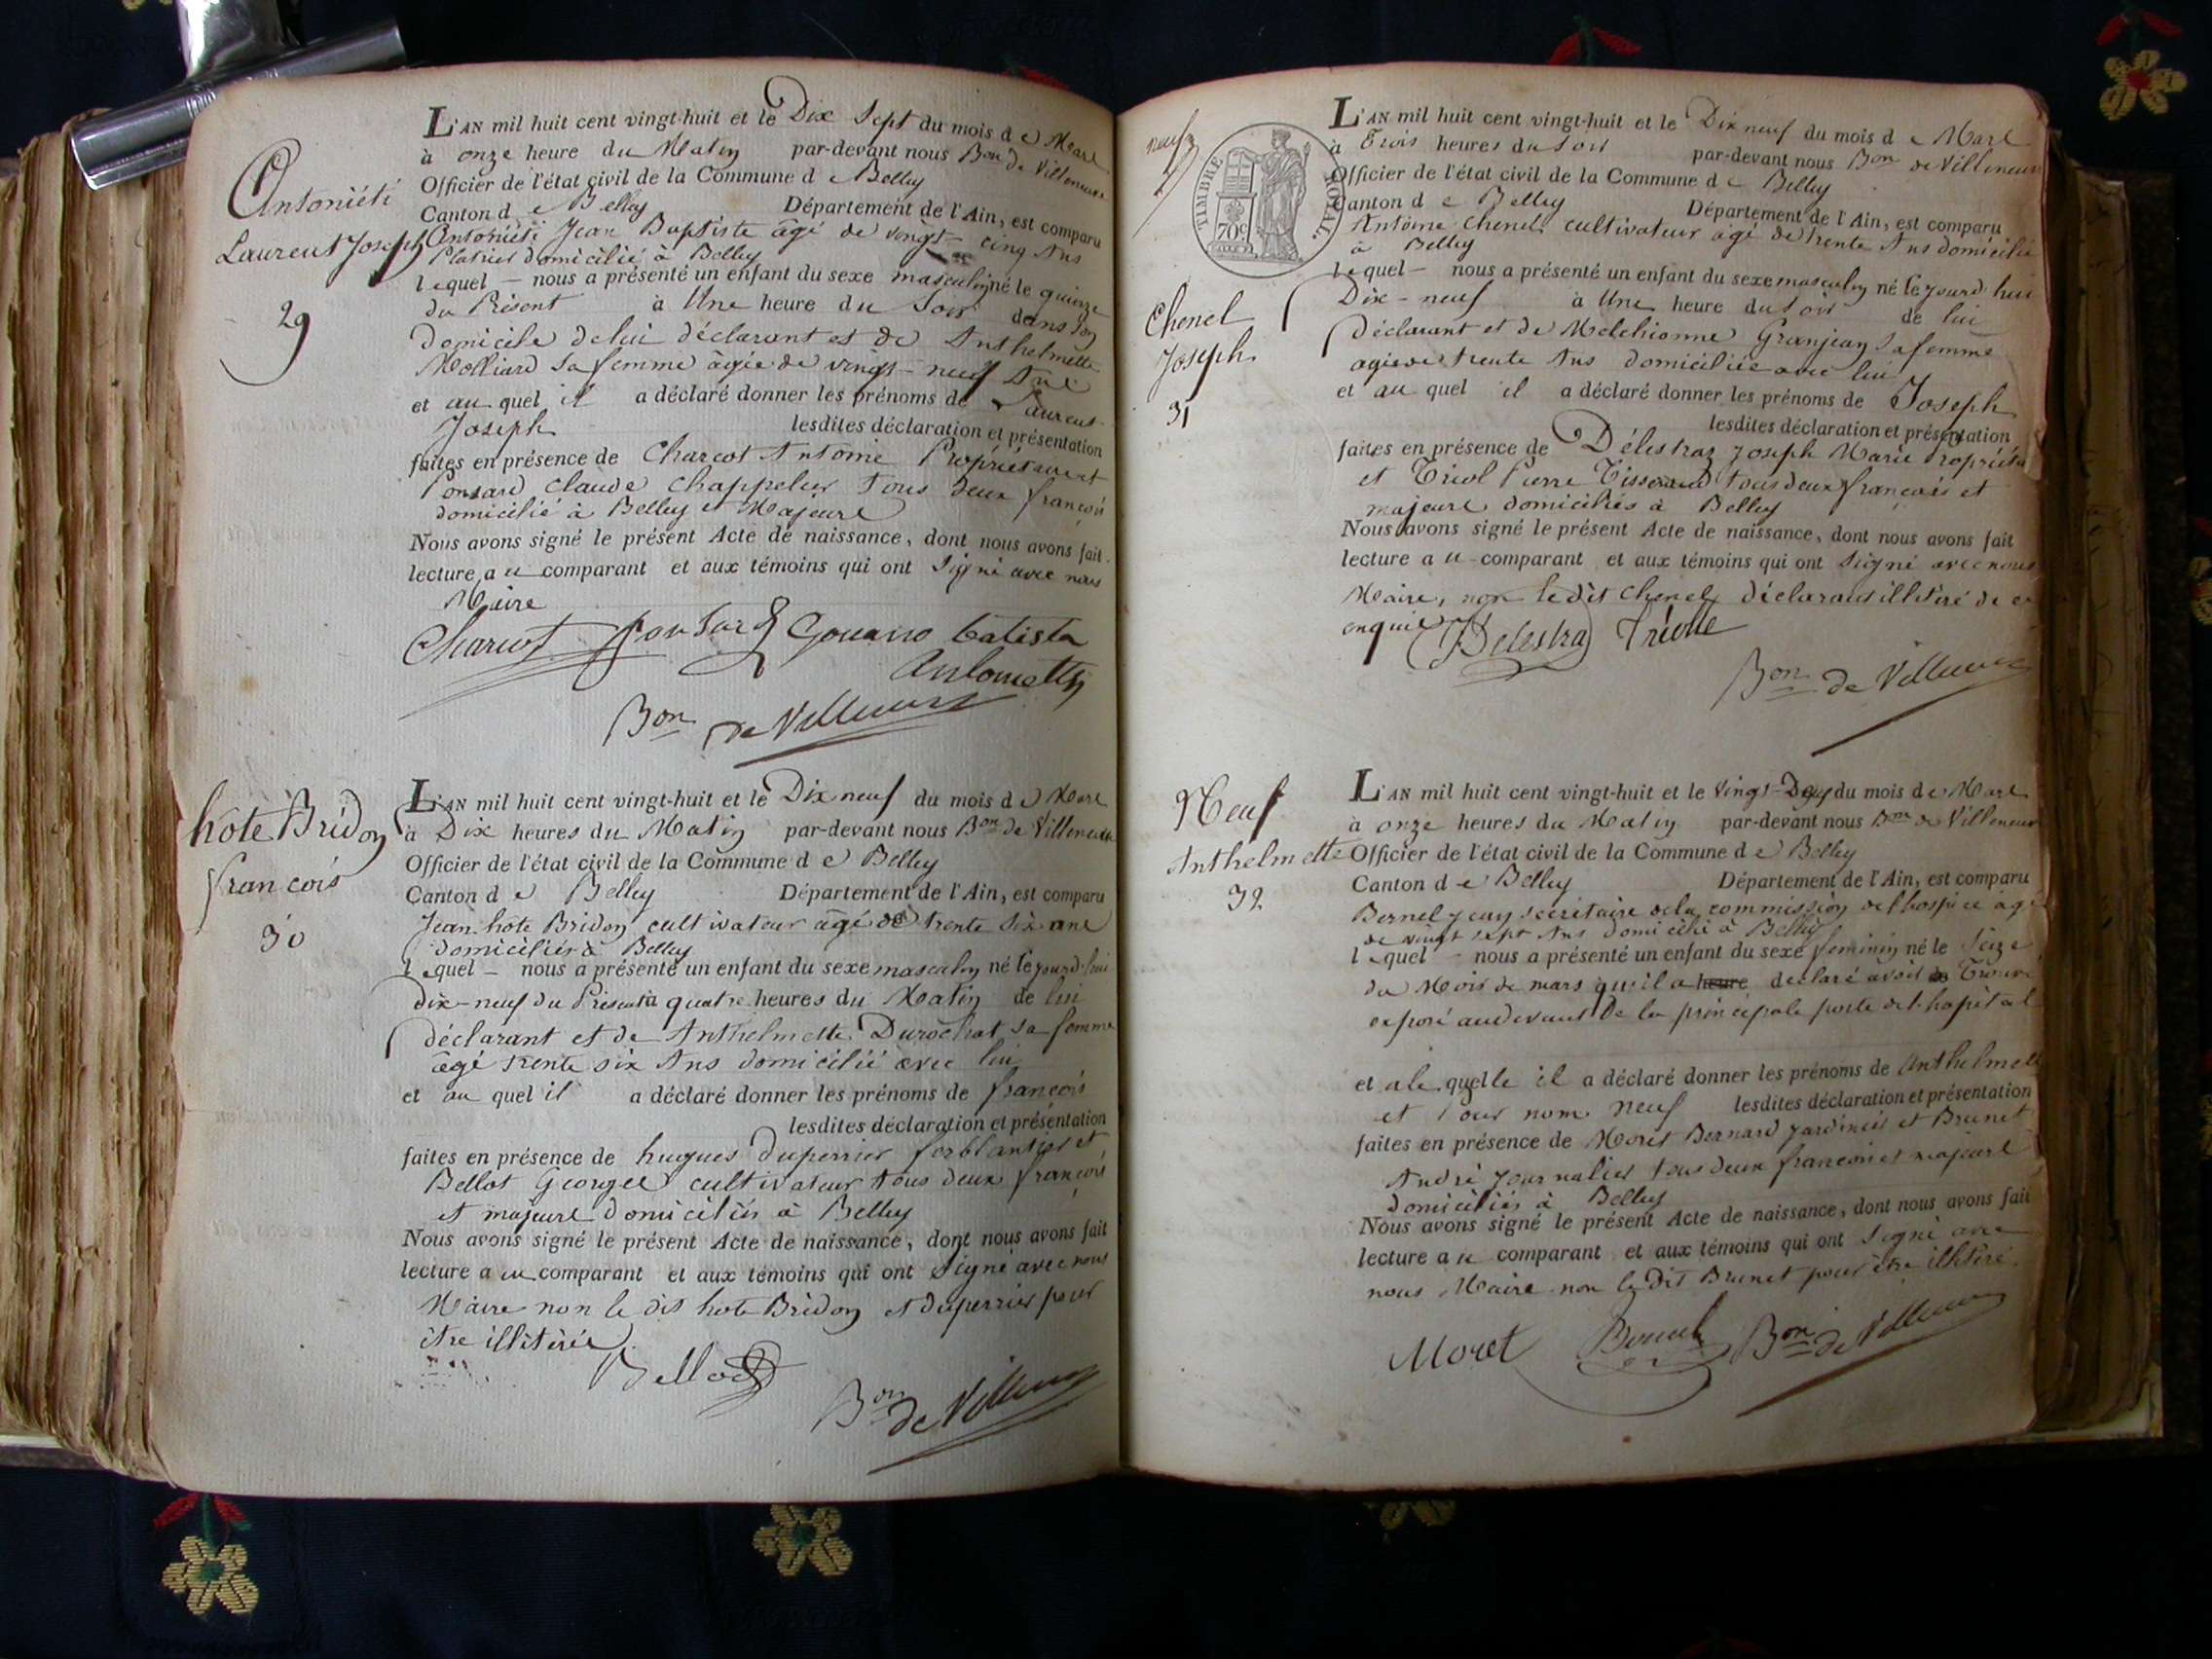 Antoniéti
Laurent Joseph
29
L'AN mil huit cent vingt-huit et le Dix Sept du mois d e Mars
à onze heure du Matin par-devant nous Bon de Villeneuve
Officier de l'état civil de la Commune d e Belley
Canton d e Belley Département de l'Ain, est comparu
Antoniéti Jean Baptiste âgé de vingt-cinq Ans
Platrier domicilié à Belley
lequel – nous a présenté un enfant du sexe masculin né le quinze
du Présent à Une heure du Soir dans son
domicile de lui déclarant et de Anthelmette
Molliard sa femme âgée de vingt-neuf Ans
et au quel il a déclaré donner les prénoms de Laurent
Joseph lesdites déclaration et présentation
faites en présence de Charcot Antoine Propriétaire et
Ponsard claude chappelier tous deux françois
domicilié à Belley et Majeure
Nous avons signé le présent Acte de naissance, dont nous avons fait
lecture a u comparant et aux témoins qui ont Signé avec nous
Maire
Charcot Ponsard Batista
Antonietti
Bon de Villeneuve
hote Bridon
françois
30
L'AN mil huit cent vingt-huit et le Dix neuf du mois d e Mars
à Dix heures du Matin par-devant nous Bon de Villeneuve
Officier de l'état civil de la Commune d e Belley
Canton d e Belley Département de l'Ain, est comparu
Jean hote Bridon cultivateur âgé de trente six ans
domicilier à Belley
lequel – nous a présenté un enfant du sexe masculin né le jourd-hui
dix-neuf du Présent à quatre heures du Matin de lui
déclarant et de Anthelmette Durochat sa femme
âgé trente six Ans domicilié avec lui
et au quel il a déclaré donner les prénoms de françois
lesdites déclaration et présentation
faites en présence de hugues Duperrier ferblantier et
Bellot George cultivateur tous deux françois
et majeure domiciliés à Belley
Nous avons signé le présent Acte de naissance, dont nous avons fait
lecture a u comparant et aux témoins qui ont Signé avec nous
Maire non le dit hote Bridon et duperrier pour
être illitérés
Bellot
Bon de Villeneuve
neuf
TIMBRE ROYAL
70c
Chenel
Joseph
31
L'AN mil huit cent vingt-huit et le Dix neuf du mois d e Mars
à Trois heures du Soir par-devant nous Bon de Villeneuve
Officier de l'état civil de la Commune d e Belley
Canton d e Belley Département de l'Ain, est comparu
Antoine Chenel cultivateur âgé de trente Ans domicilié
à Belley
lequel – nous a présenté un enfant du sexe masculin né le jourd hui
Dix-neuf à Une heure du Soir de lui
déclarant et de Melchionne Granjean sa femme
agée de trente Ans domiciliée avec lui
et au quel il a déclaré donner les prénoms de Joseph
lesdites déclaration et présentation
faites en présence de Délestraz Joseph Marie Propriétaire
et Triol Pierre Tisserand tous deux françois et
majeure domiciliés à Belley
Nous avons signé le présent Acte de naissance, dont nous avons fait
lecture a u comparant et aux témoins qui ont Signé avec nous
Maire, non le dit Chenel déclarant illitéré de ce
enquis
Delestra Triolle
Bon de Villeneuve
Neuf
Anthelmette
32
L'AN mil huit cent vingt-huit et le vingt-Deux du mois d e Mars
à onze heures du Matin par-devant nous Bon de Villeneuve
Officier de l'état civil de la Commune d e Belley
Canton d e Belley Département de l'Ain, est comparu
jean sécrétaire de la commission de l'hospice agé
de vingt sept Ans domicilié à Belley
lequel – nous a présenté un enfant du sexe feminin né le Seize
du Mois de mars qu'il a heure declaré avoir Trouvé
exposé audevant de la principale porte de l'hopital
et a la quelle il a déclaré donner les prénoms de Anthelmette
et Pour nom neuf lesdites déclaration et présentation
faites en présence de Moret Bernard jardinier et Brunet
André Journalier tous deux françois et majeure
domiciliés à Belley
Nous avons signé le présent Acte de naissance, dont nous avons fait
lecture a u comparant et aux témoins qui ont Signé avec
nous Maire non le dit Brunet pour être illitéré.
Moret Bon de Villeneuve